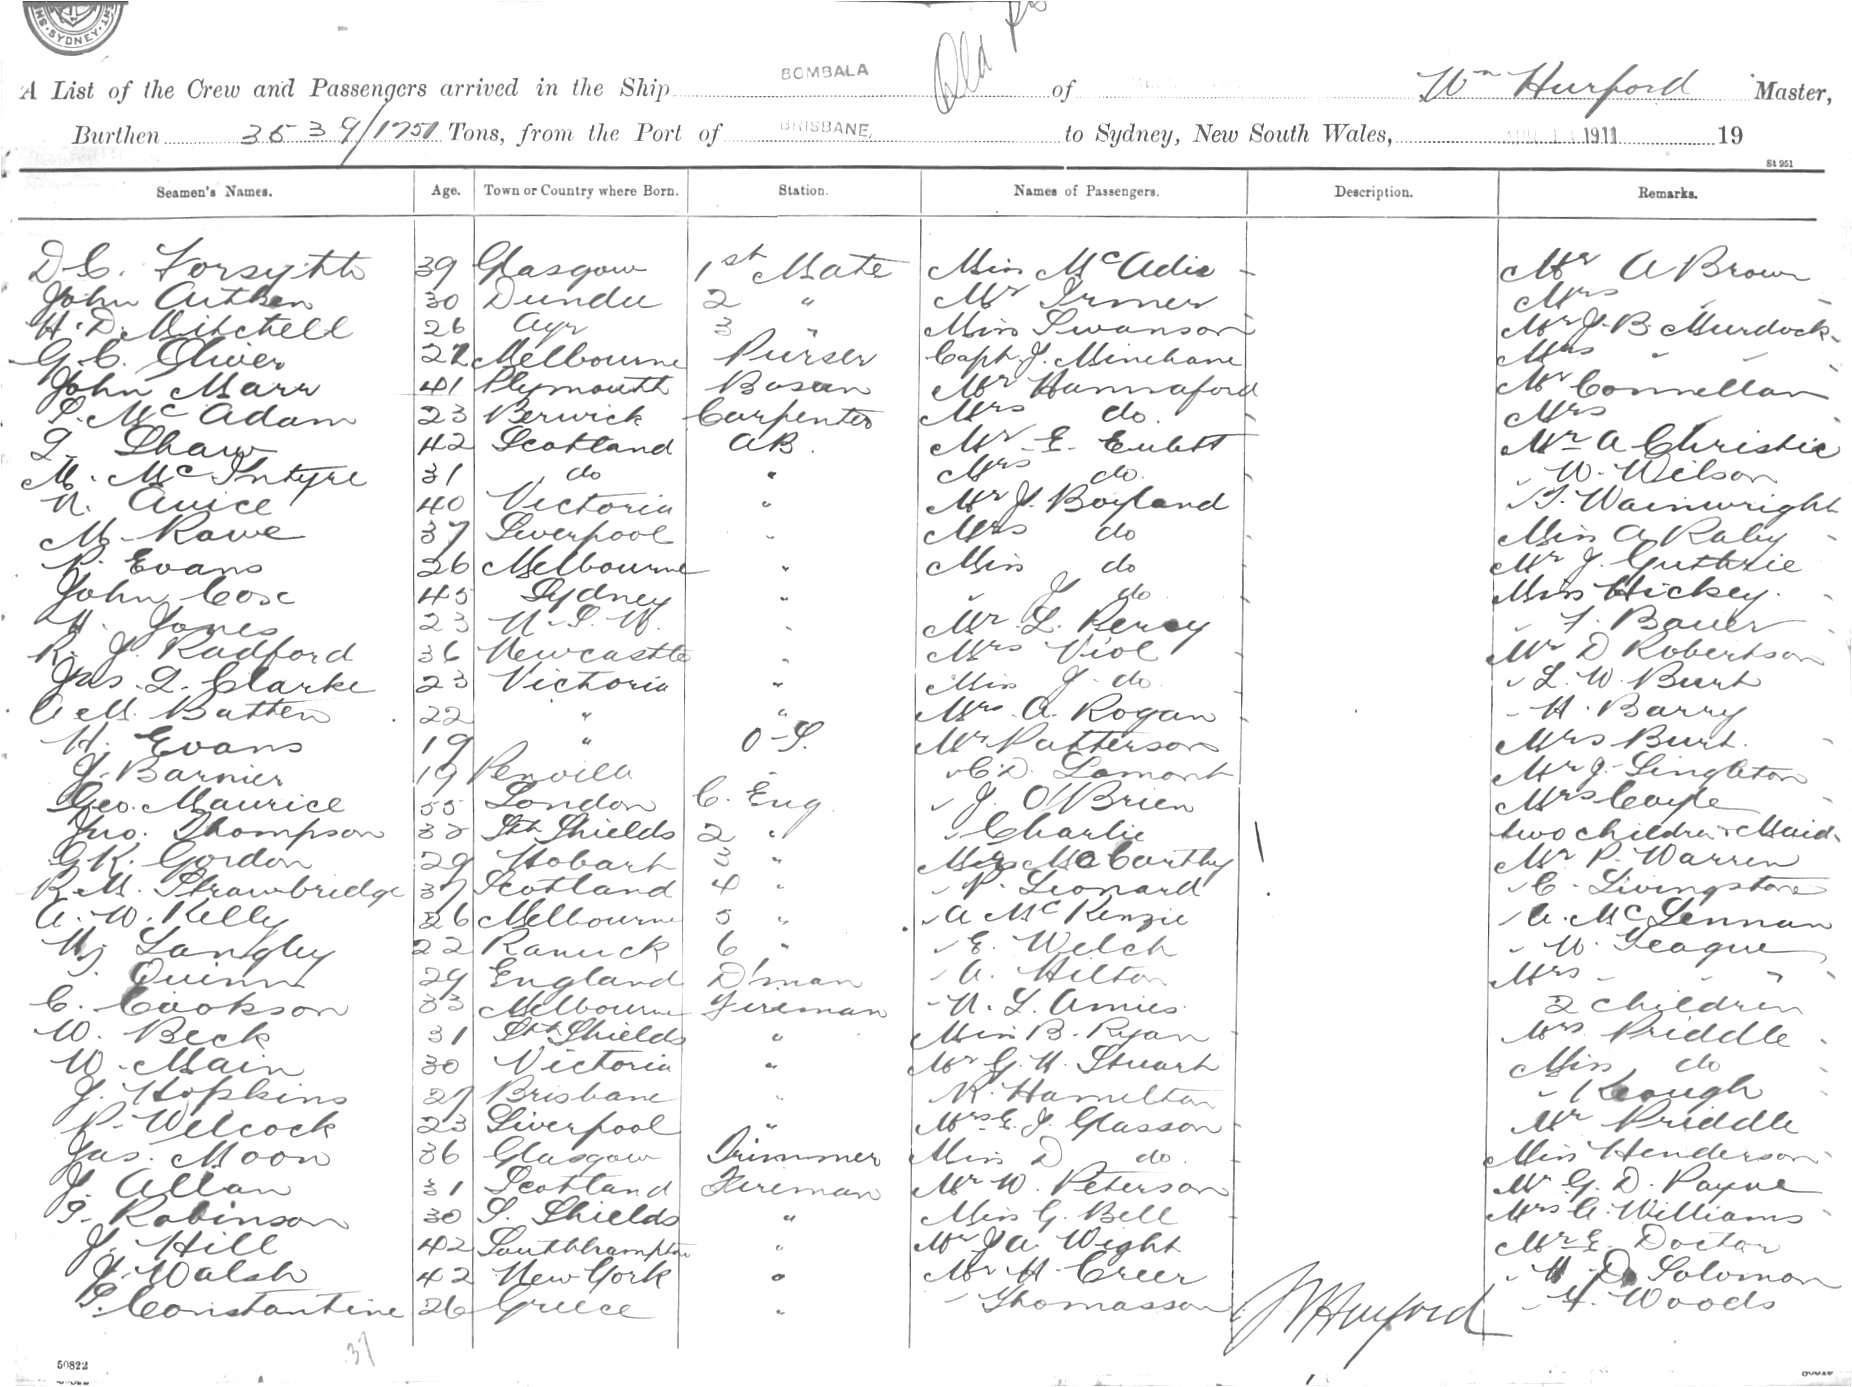 SYDNEY
Old
BOMBALA
A List of the Crew and Passengers arrived in the Ship of Wm Hurford Master,
Burthen 3539/1751 Tons, from the Port of BRISBANE, to Sydney, New South Wales, 1911 19
St 951
Seamen's Names. Age. Town or Country where Born. Station. Names of Passengers. Description. Remarks.
D. C. Forsyth 39 Glasgow 1st Mate Miss McAdie - Mr A Brown
John Aitken 30 Dundee 2 " Mr Irmer - Mrs " -
H. D. Mitchell 26 Ayr 3 " Miss Swanson Mr J. B. Murdock -
G. C. Oliver Melbourne Purser Capt. J. Minehane Mrs " "
John Marr 41 Plymouth Bosun Mr Hannaford Mr Connellan
S. McAdam 23 Berwick Carpenter Mrs do. Mrs "
Shaw 42 Scotland AB. Mr E. Mr A Christie
M. McIntyre 31 do " Mrs do. " W. Wilson
N. Avice 40 Victoria " Mr J. Boyland " T. Wainwright
M. Rawe 37 Liverpool " Mrs do Miss A Raby -
P. Evans 26 Melbourne " Miss do Mr J. Guthrie
John Cox 45 Sydney " " J do Miss Hickey. -
H. Jones 23 N. S. W. " Mr L. Percy " F. Bauer -
R. J. Radford 36 Newcastle " Mrs Viol - Mr D Robertson
Jas. L. Clarke 23 Victoria " Miss J. do. " L. W. Burt
A. M. Batten 22 " " Mrs A. Rogan - " H. Barry
H. Evans 19 " O-S. Mr Patterson Mrs Burt. -
J. Barnier 19 " C. D. Lamont Mr J. Singleton
Geo. Maurice 55 London C. Eng. " J. O'Brien Mrs Coyle -
Jno. Thompson Sth Shields 2 " " Charlie two children & Maid -
G. K. Gordon 29 Hobart 3 " McCarthy Mr P. Warren
R. M. Strawbridge 37 Scotland 4 " " P. Leonard " C. Livingstone
A. W. Kelly 26 Melbourne 5 " " A McKenzie " A. McLennan
Langley 22 6 " " E. Welch " W. Teague
Quinn 29 England D'man " A. Hilton Mrs " " -
C. Cookson 33 Melbourne Fireman " N. L. Amies. 2 children
W. Beck 31 Sth Shields " Miss B. Ryan - Mrs. Priddle -
W. Main 30 Victoria " Mr G. H. Stuart Miss do -
J. Hopkins 27 Brisbane " R. Hamilton " Keough -
P. Welcock 23 Liverpool " Mrs E. J. Glasson - Mr Priddle
Jas. Moon 36 Glasgow Trimmer Miss D do. - Miss Henderson -
J. Allan 31 Scotland Fireman Mr W. Peterson Mr G. D. Payne
Robinson 30 S. Shields " Miss G. Bell - Mrs A. Williams -
J. Hill 42 Southhampton " Mr J A. Wight Mr E. Doctor
J. Walsh 42 New York " Mr H. Creer " H. D. Solomon
Constantine 26 Greece " " Thomasson " H. Woods
W Hurford
37
50822